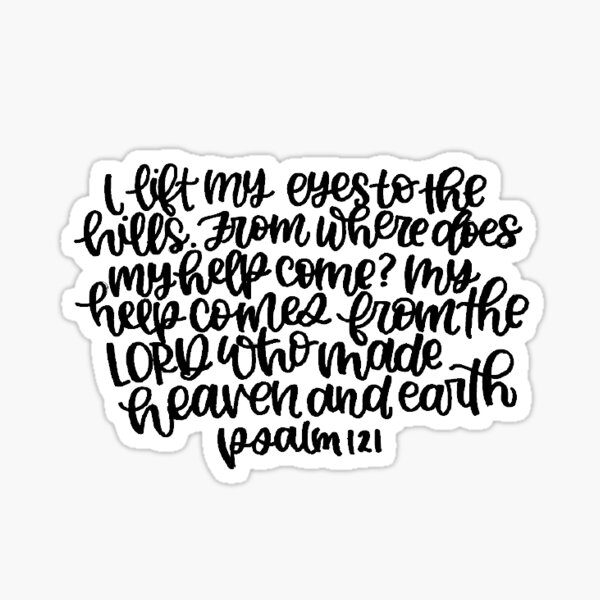 I lift my eyes to the
hills. From where does
my help come? My
help comes from the
LORD who made
heaven and earth
psalm 121